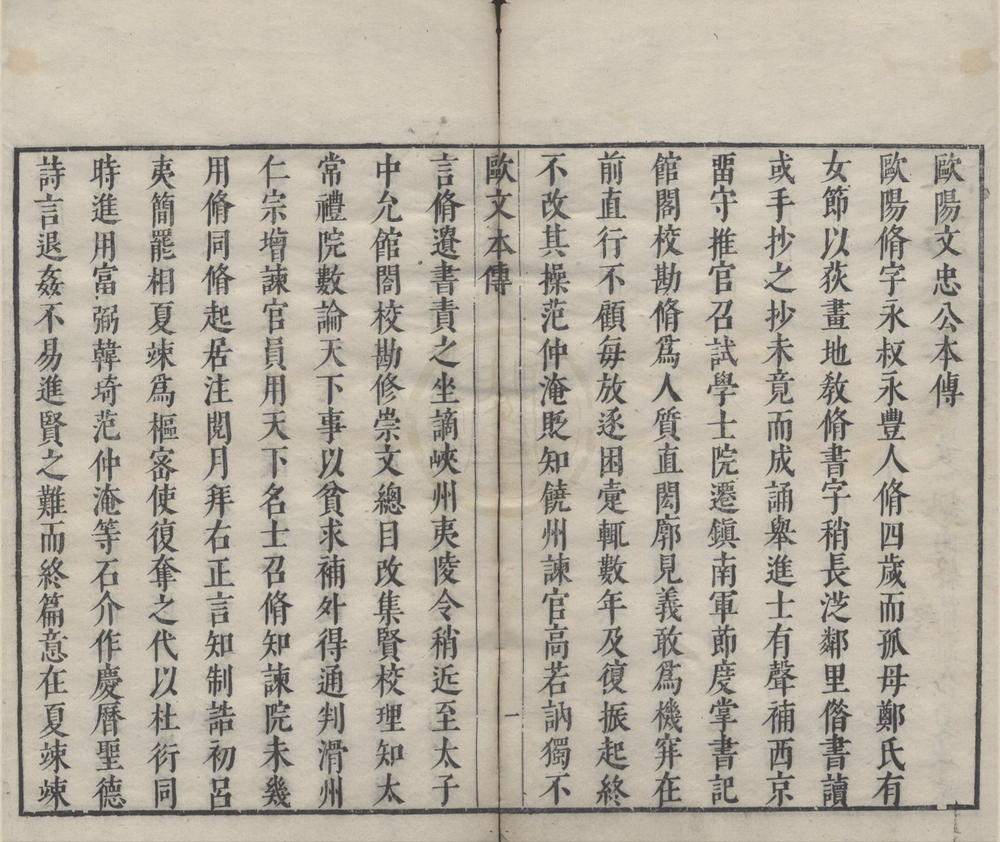 歐陽文忠公本傳
歐陽脩字永叔永豐人脩四歲而孤母鄭氏有
女節以荻畫地敎脩書字稍長從鄰里借書讀
或手抄之抄未竟而成誦舉進士有聲補西京
畱守推官召試學士院遷鎭南軍節度掌書記
館閣校勘脩爲人質直閎廓見義敢爲機穽在
前直行不顧每放逐困躓輒數年及復振起終
不改其操范仲淹貶知饒州諫官高若訥獨不
歐文本傳
一
言脩遺書責之坐謫峽州夷陵令稍近至太子
中允館閤校勘修崇文總目改集賢校理知太
常禮院數論天下事以貧求補外得通判滑州
仁宗增諫官員用天下名士召脩知諫院未幾
用脩同脩起居注閱月拜右正言知制誥初呂
夷簡罷相夏竦爲樞密使復奪之代以杜衍同
時進用富弼韓琦范仲淹等石介作慶曆聖德
詩言退姦不易進賢之難而終篇意在夏竦竦